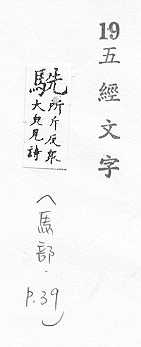 19五經文字
駪所斤反衆
大皃見詩
(馬部.p.39)